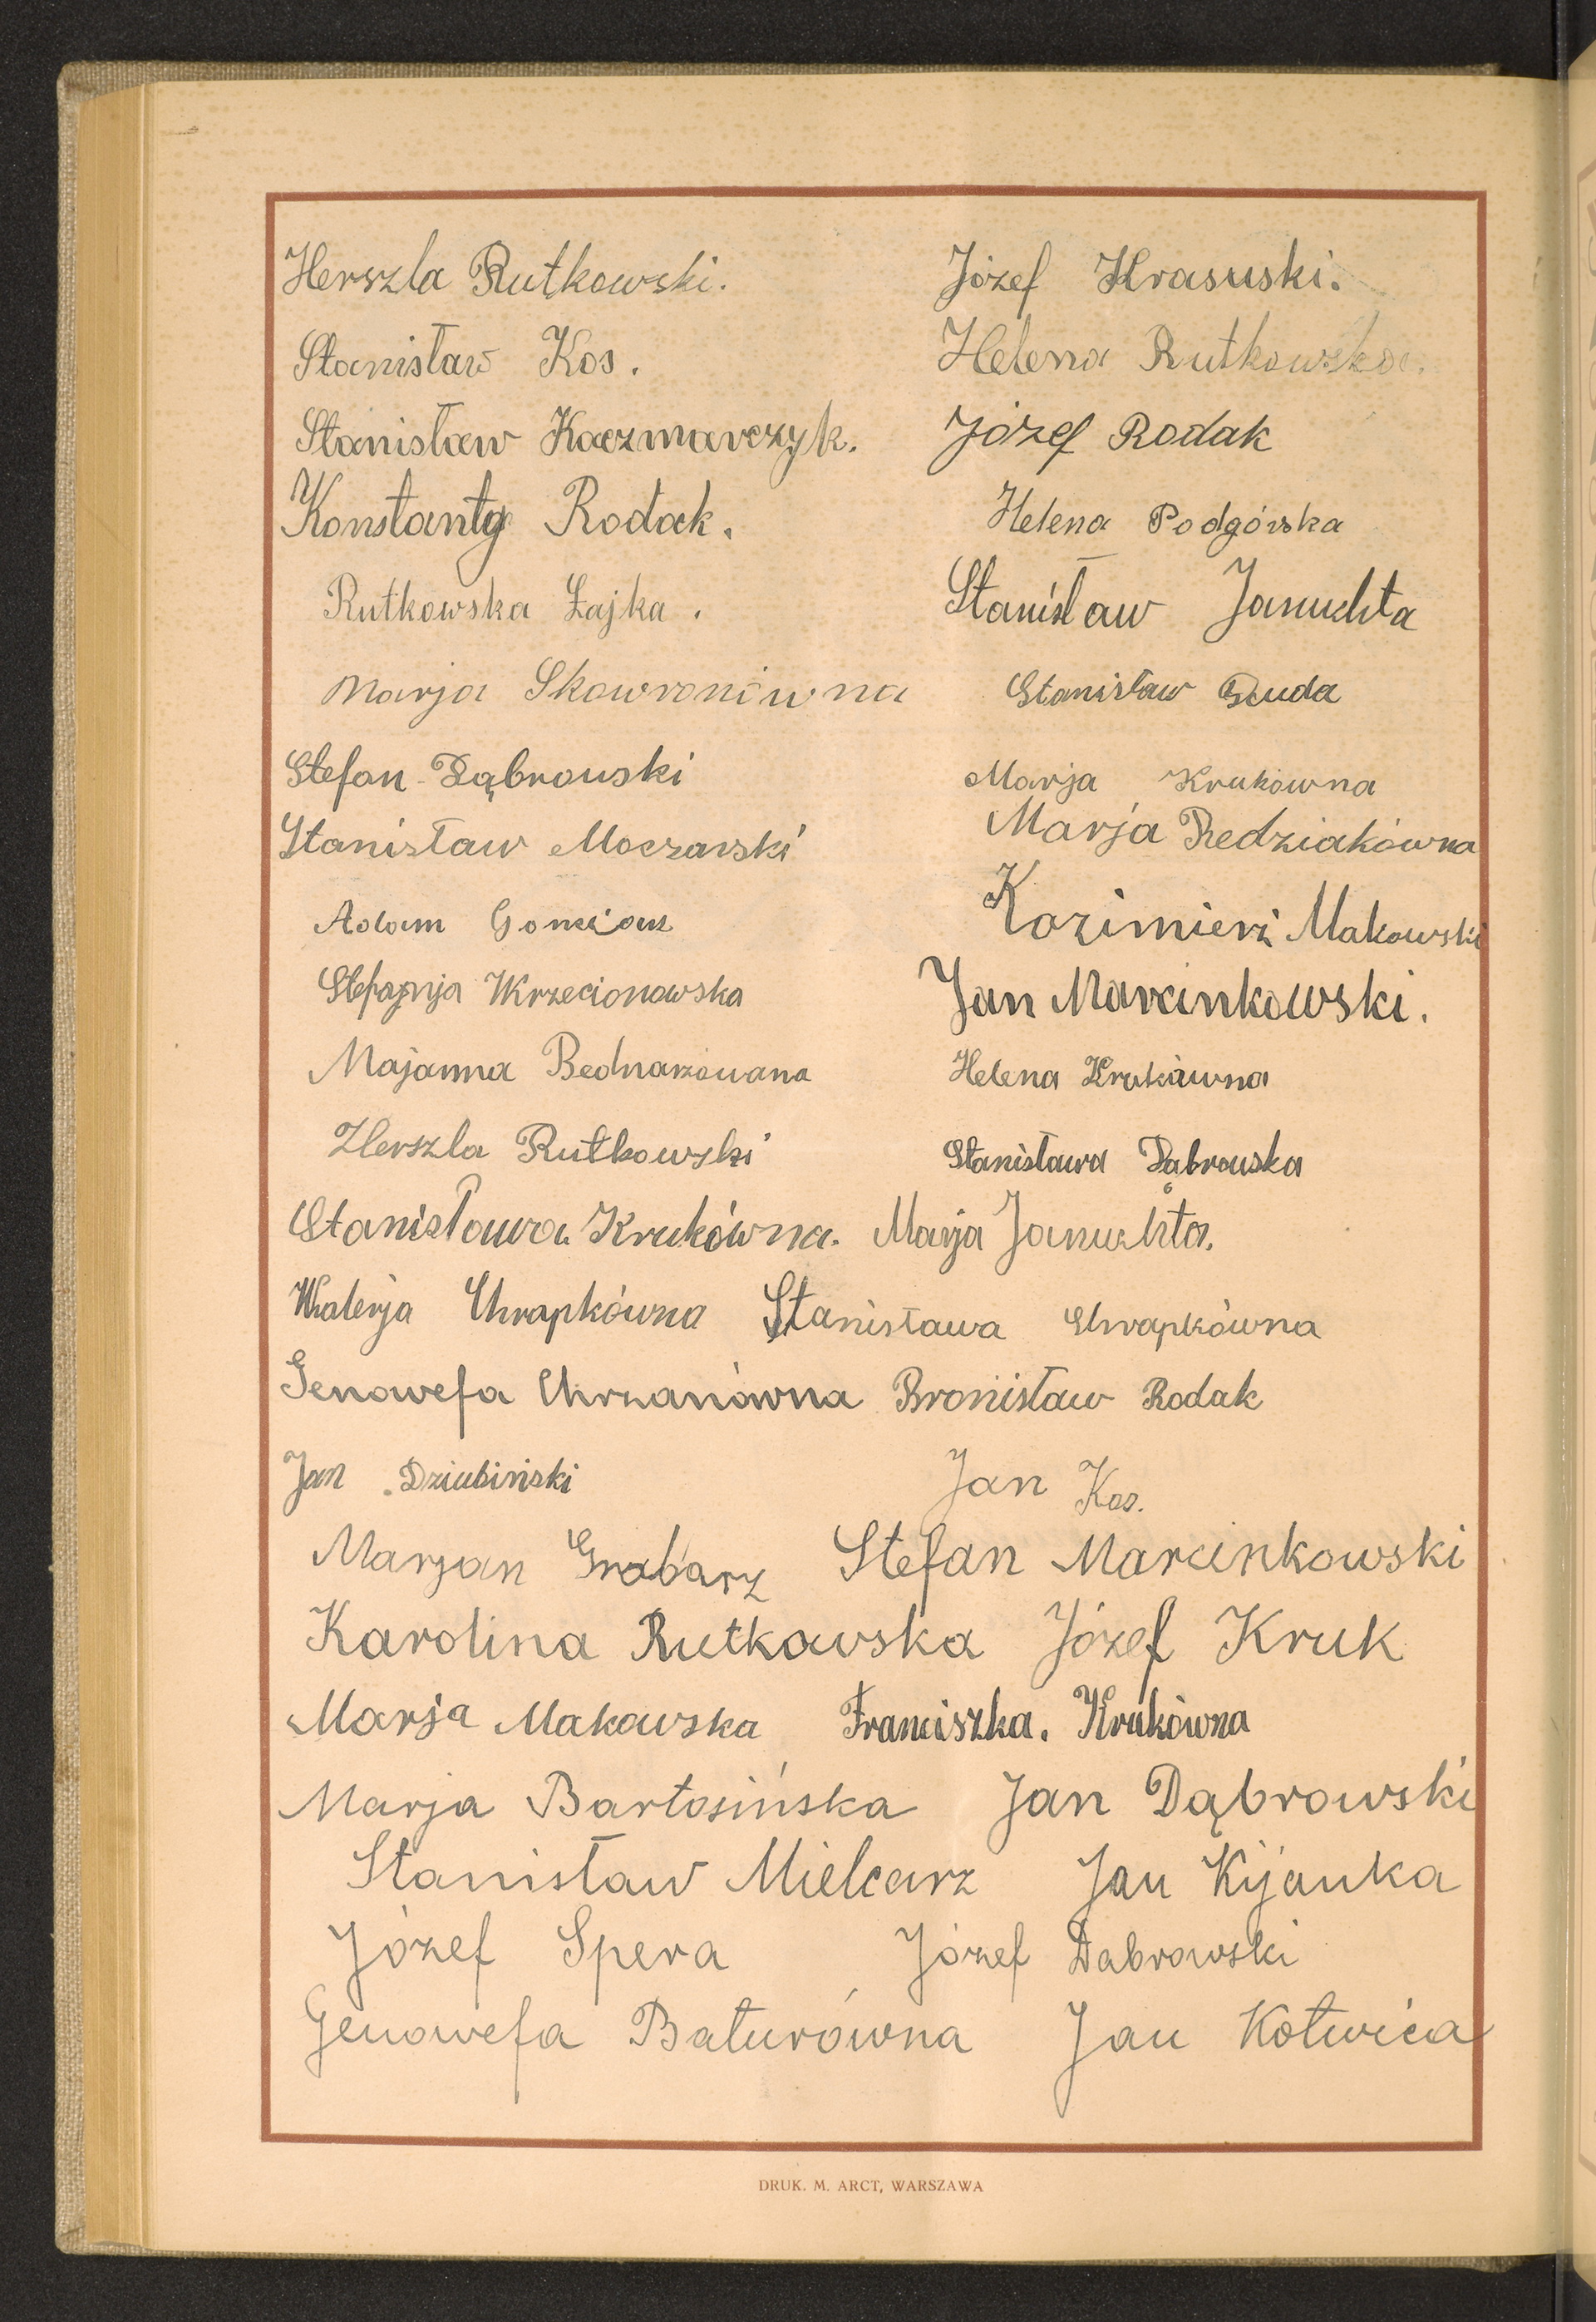 Herszla Rutkowski. Józef Krasuski.
Stanisław Kos. Helena Rutkowska.
Stanisław Kaczmarczyk. Józef Rodak
Konstanty Rodak. Helena Podgórska
Rutkowska Łajka. Stanisław Januchta
Marja Skowronówna Stanisław Duda
Stefan Dąbrowski Marja Krukówna
Stanisław Moczarski Marja Redziakówna
Adam Gonciarz Kazimierz Makowski
Stefanja Wrzecionowska Jan Marcinkowski.
Majanna Bednarzowana Helena Krukówna
Herszla Rutkowski Stanisława Dąbrowska
Stanisława Krukówna. Marja Januchta.
Walerja Chrapkówna Stanisława Chrapkówna
Genowefa Chrzanówna Bronisław Rodak
Jan Dziubiński Jan Kos.
Marjan Grabarz Stefan Marcinkowski
Karolina Rutkowska Józef Kruk
Marja Makowska Franciszka. Krukówna
Marja Bartosińska Jan Dąbrowski
Stanisław Mielcarz Jan Kijanka
Józef Spera Józef Dabrowski
Genowefa Baturówna Jan Kotwica
DRUK. M. ARCT, WARSZAWA